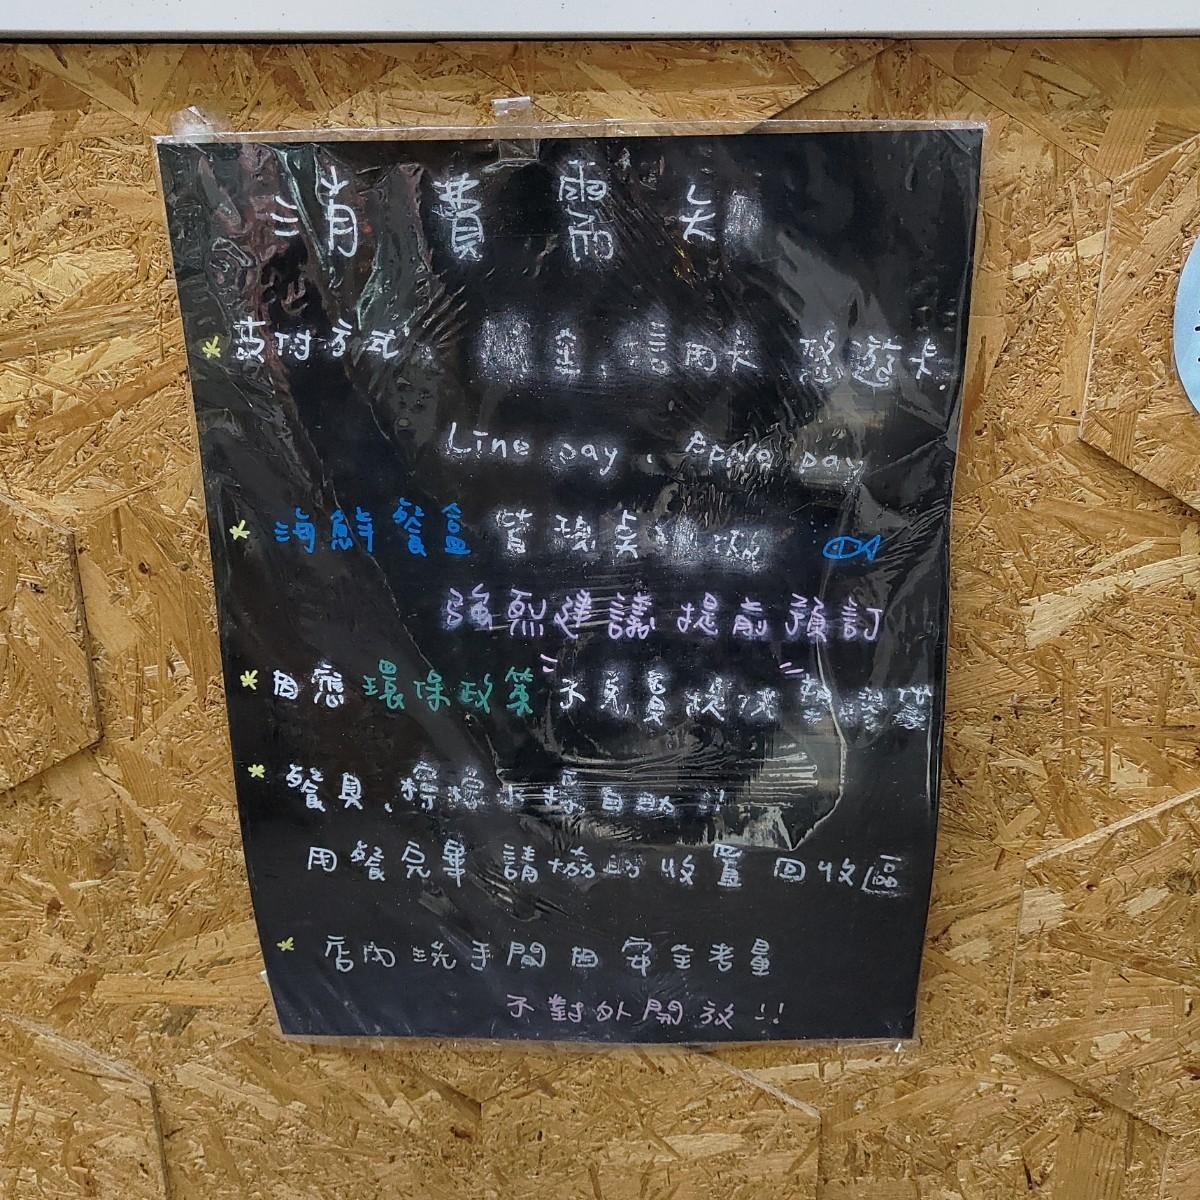 消費需知
* 支付方式: 現金、信用卡 悠遊卡、
Line pay、Apple pay
* 海鮮餐盒 皆現點現做
強烈建議提前預訂
* 因應環保政策 不免費提供塑膠袋
* 餐具、檸檬水 自助!!
用餐完畢 請協助收置 回收區
* 店內洗手間因安全考量
不對外開放!!